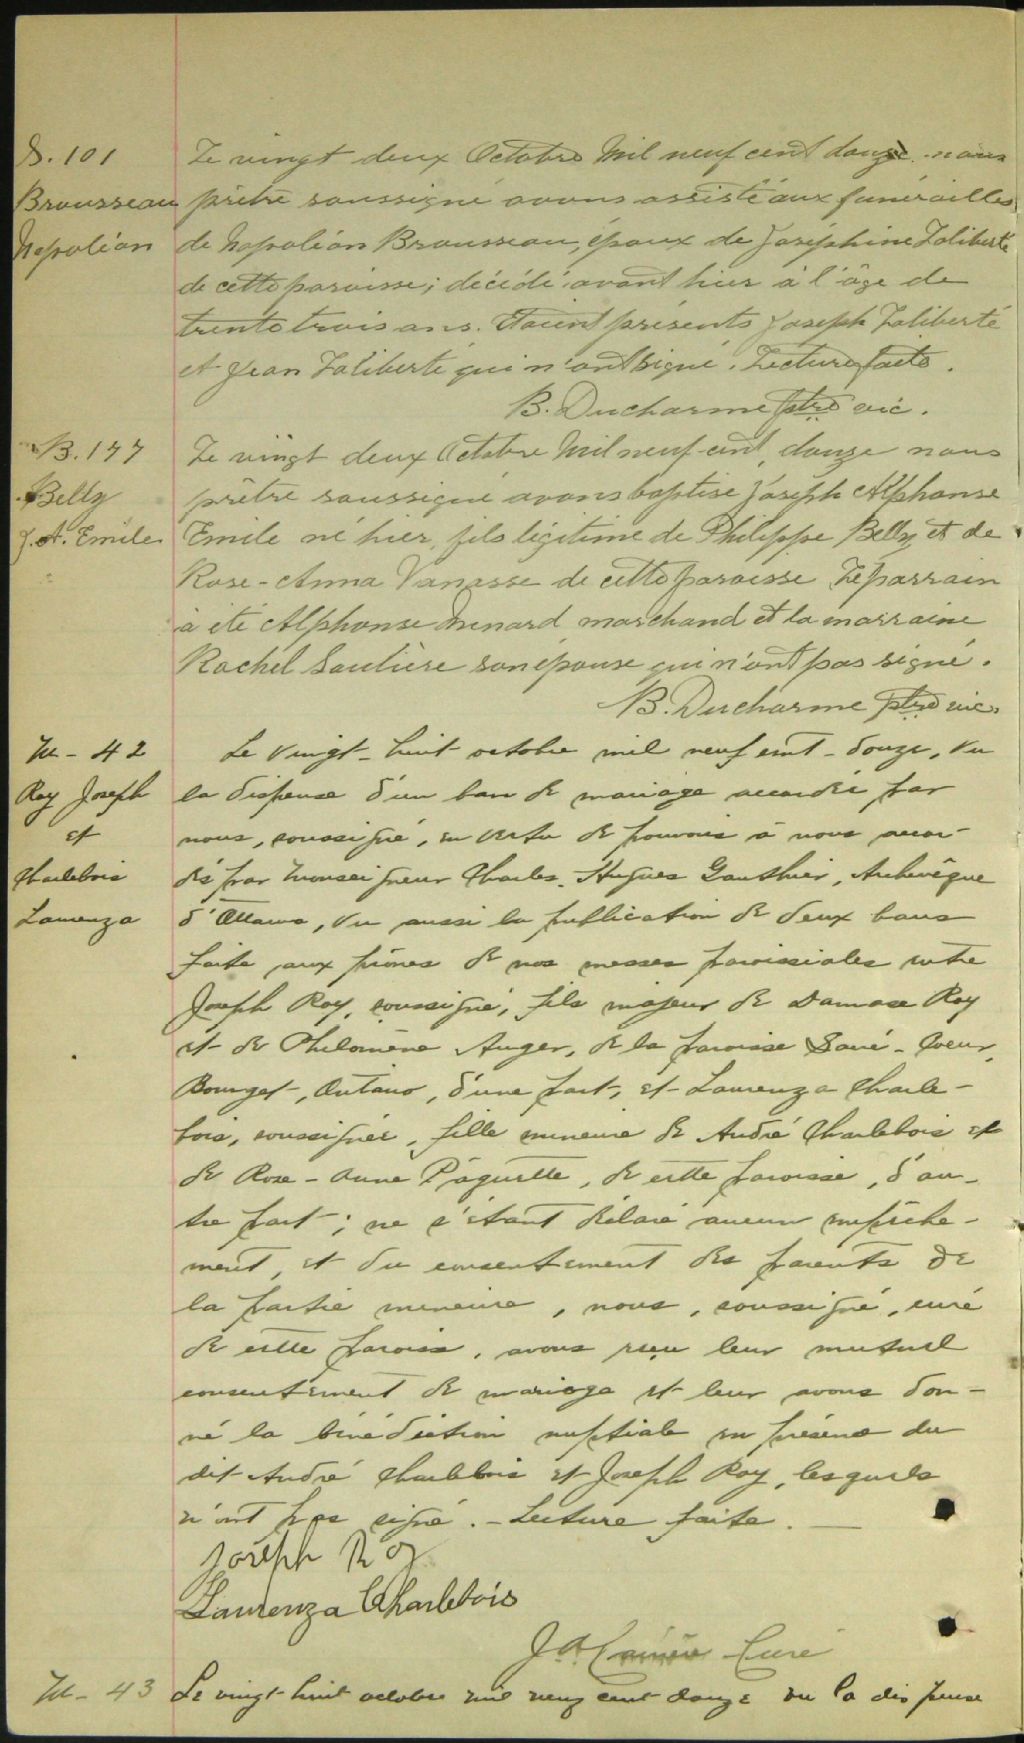 S. 101
Brousseau
Napoléon
Le vingt deux Octobre Mil neuf cent douze nous
prêtre soussigné avons assisté aux funérailles
de Napoléon Brousseau, époux de Joséphine Laliberté
de cette paroisse; décédé avant hier à l'âge de
trente trois ans. Etaient présents Joseph Laliberté
et Jean Laliberté qui n'ont signé. Lecture faite.
B. Ducharme ptre vic.
B. 177
Belly
J. A. Emile
Le vingt deux Octobre Mil neuf cent douze nous
prêtre soussigné avons baptisé Joseph Alphonse
Emile né hier, fils légitime de Philippe Belly et de
Rose-Anna Vanasse de cette paroisse Le parrain
à été Alphonse Menard marchand et la marraine
Rachel Saulière son épouse qui n'ont pas signé.
B. Ducharme ptre vic.
M - 42
Roy Joseph
et
Charlebois
Laurenza
Le vingt-huit octobre mil neuf cent-douze, vu
la dispense d'un ban de mariage accordée par
nous, soussigné, en vertu de pouvoirs à nous accor-
dés par Monseigneur Charles-Hugues Gauthier, Archevêque
d'Ottawa, vu aussi la publication de deux bans
faite aux prônes de nos messes paroissiales entre
Joseph Roy, soussigné, fils majeur de Damase Roy
et de Philomène Auger, de la paroisse Sacré-Coeur,
Bourget, Ontario, d'une part, et Laurenza Charle-
bois, soussignée, fille mineure de André Charlebois et
de Rose-Anne Paquette, de cette paroisse, d'au-
tre part; ne s'étant déclaré aucun empêche-
ment, et du consentement des parents de
la partie mineure, nous, soussigné, curé
de cette paroisse, avons reçu leur mutuel
consentement de mariage et leur avons don-
né la bénédiction nuptiale en présence du
dit André Charlebois et Joseph Roy, lesquels
n'ont pas signé. - Lecture faite. -
Joseph Roy
Laurenza Charlebois
J A Carrière Curé
M - 43
Le vingt-huit octobre mil neuf cent douze vu la dispense